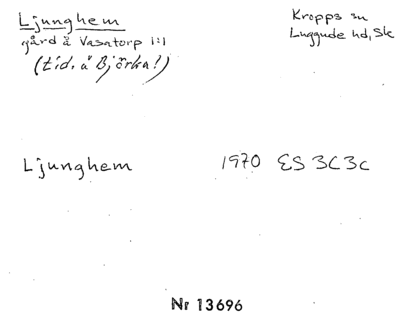 Ljunghem
gård å Vasatorp 1:1
(tid. å Björka!)
Kropps sn
Luggude hd, Sk
Ljunghem 1970 ES 3C3c
Nr 13696